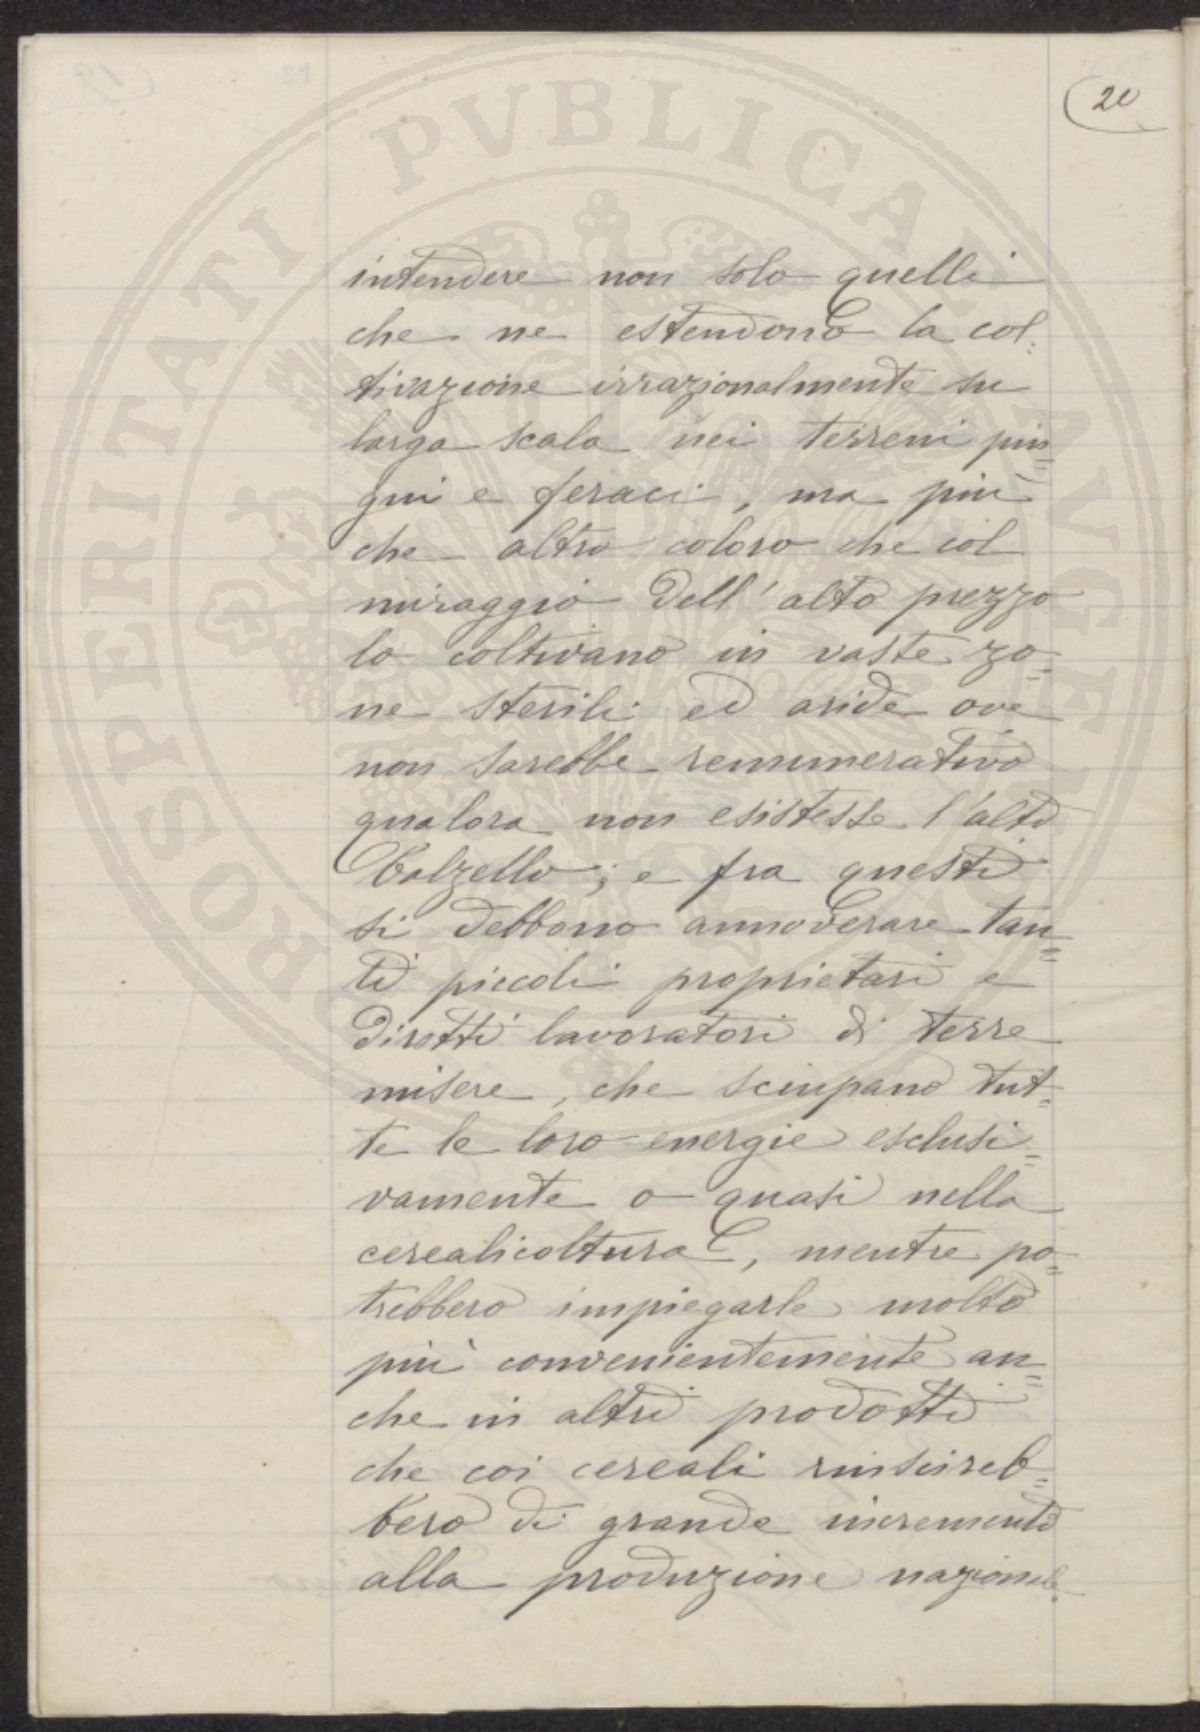 20
intendere non solo quelli
che ne estendono la col=
tivazione irrazionalmente su
larga scala nei terreni pin=
gui e feraci, ma più
che altro coloro che col
miraggio dell'alto prezzo
lo coltivano in vaste zo=
ne sterili ed aride ove
non sarebbe remunerativo
qualora non esistesse l'alto
balzello; e fra questi
si debbono annoverare tan=
ti piccoli proprietari e
diretti lavoratori di terre
misere, che sciupano tut=
te le loro energie esclusi=
vamente o quasi nella
cerealicoltura, mentre po=
trebbero impiegarle molto
più convenientemente an=
che in altri prodotti
che coi cereali riuscireb=
bero di grande incremento
alla produzione nazionale.
PROSPERITATI PVBLICAE AVGENDAE